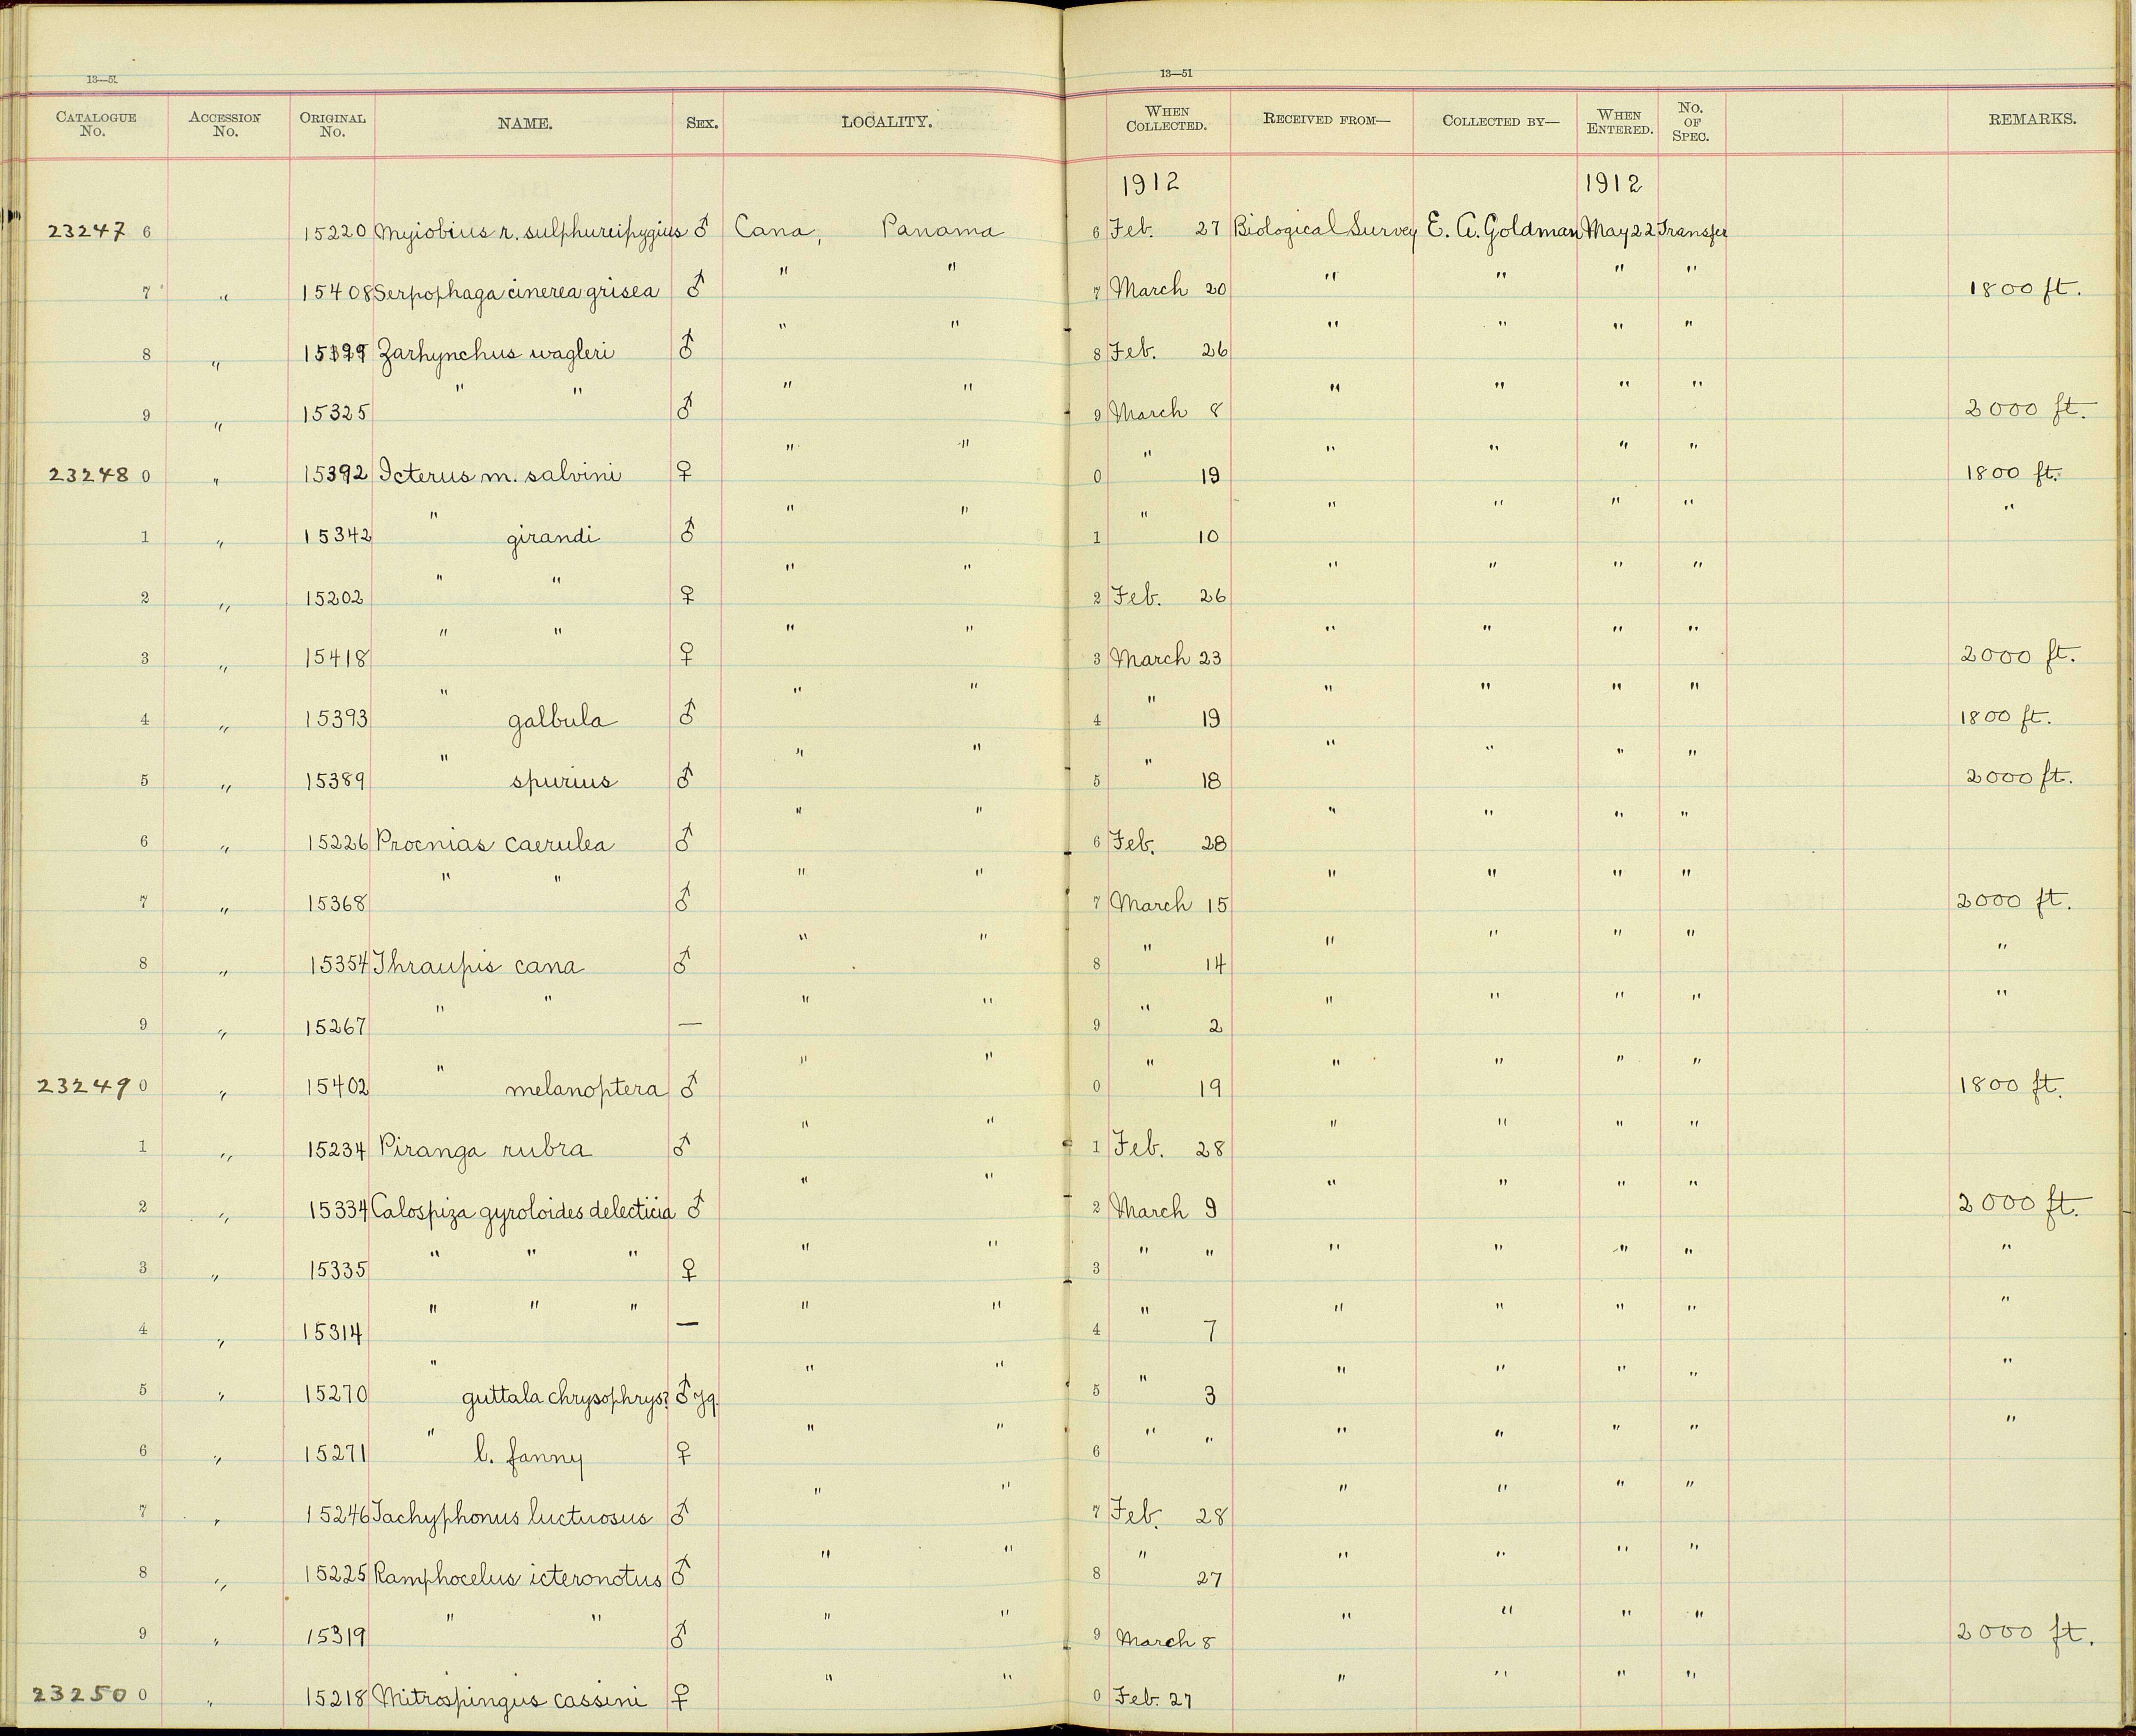 13—51 13—51
CATALOGUE No. ACCESSION No. ORIGINAL No. NAME. SEX. LOCALITY. WHEN COLLECTED. RECEIVED FROM— COLLECTED BY— WHEN ENTERED. No. OF SPEC. REMARKS.
1912 1912
23247 6 15220 Myiobius r. sulphureipygius ♂ Cana, Panama 6 Feb. 27 Biological Survey E. A. Goldman May 22 Transfer
7 " 15408 Serpophaga cinerea grisea ♂ " " 7 March 20 " " " " 1800 ft.
8 " Zarhynchus wagleri ♂ " " 8 Feb. 26 " " " "
9 " 15325 " " ♂ " " 9 March 8 " " " " 2000 ft.
23248 0 " 15392 Icterus m. salvini ♀ " " 0 " 19 " " " " 1800 ft.
1 " 15342 " girandi ♂ " " 1 " 10 " " " " "
2 " 15202 " " ♀ " " 2 Feb. 26 " " " "
3 " 15418 " " ♀ " " 3 March 23 " " " " 2000 ft.
4 " 15393 " galbula ♂ " " 4 " 19 " " " " 1800 ft.
5 " 15389 " spurius ♂ " " 5 " 18 " " " " 2000 ft.
6 " 15226 Procnias caerulea ♂ " " 6 Feb. 28 " " " "
7 " 15368 " " ♂ " " 7 March 15 " " " " 2000 ft.
8 " 15354 Thraupis cana ♂ " " 8 " 14 " " " " "
9 " 15267 " " — " " 9 " 2 " " " " "
23249 0 " 15402 " melanoptera ♂ " " 0 " 19 " " " " 1800 ft.
1 " 15234 Piranga rubra ♂ " " 1 Feb. 28 " " " "
2 " 15334 Calospiza gyroloides delecticia ♂ " " 2 March 9 " " " " 2000 ft.
3 " 15335 " " " ♀ " " 3 " " " " " " "
4 " 15314 " " " — " " 4 " 7 " " " " "
5 " 15270 " guttala chrysophrys? ♂ yg. " " 5 " 3 " " " " "
6 " 15271 " l. fanny ♀ " " 6 " " " " " " "
7 " 15246 Tachyphonus luctuosus ♂ " " 7 Feb. 28 " " " "
8 " 15225 Ramphocelus icteronotus ♂ " " 8 " 27 " " " "
9 " 15319 " " ♂ " " 9 March 8 " " " " 2000 ft.
23250 0 " 15218 Mitrospingus cassini ♀ " " 0 Feb. 27 " " " "